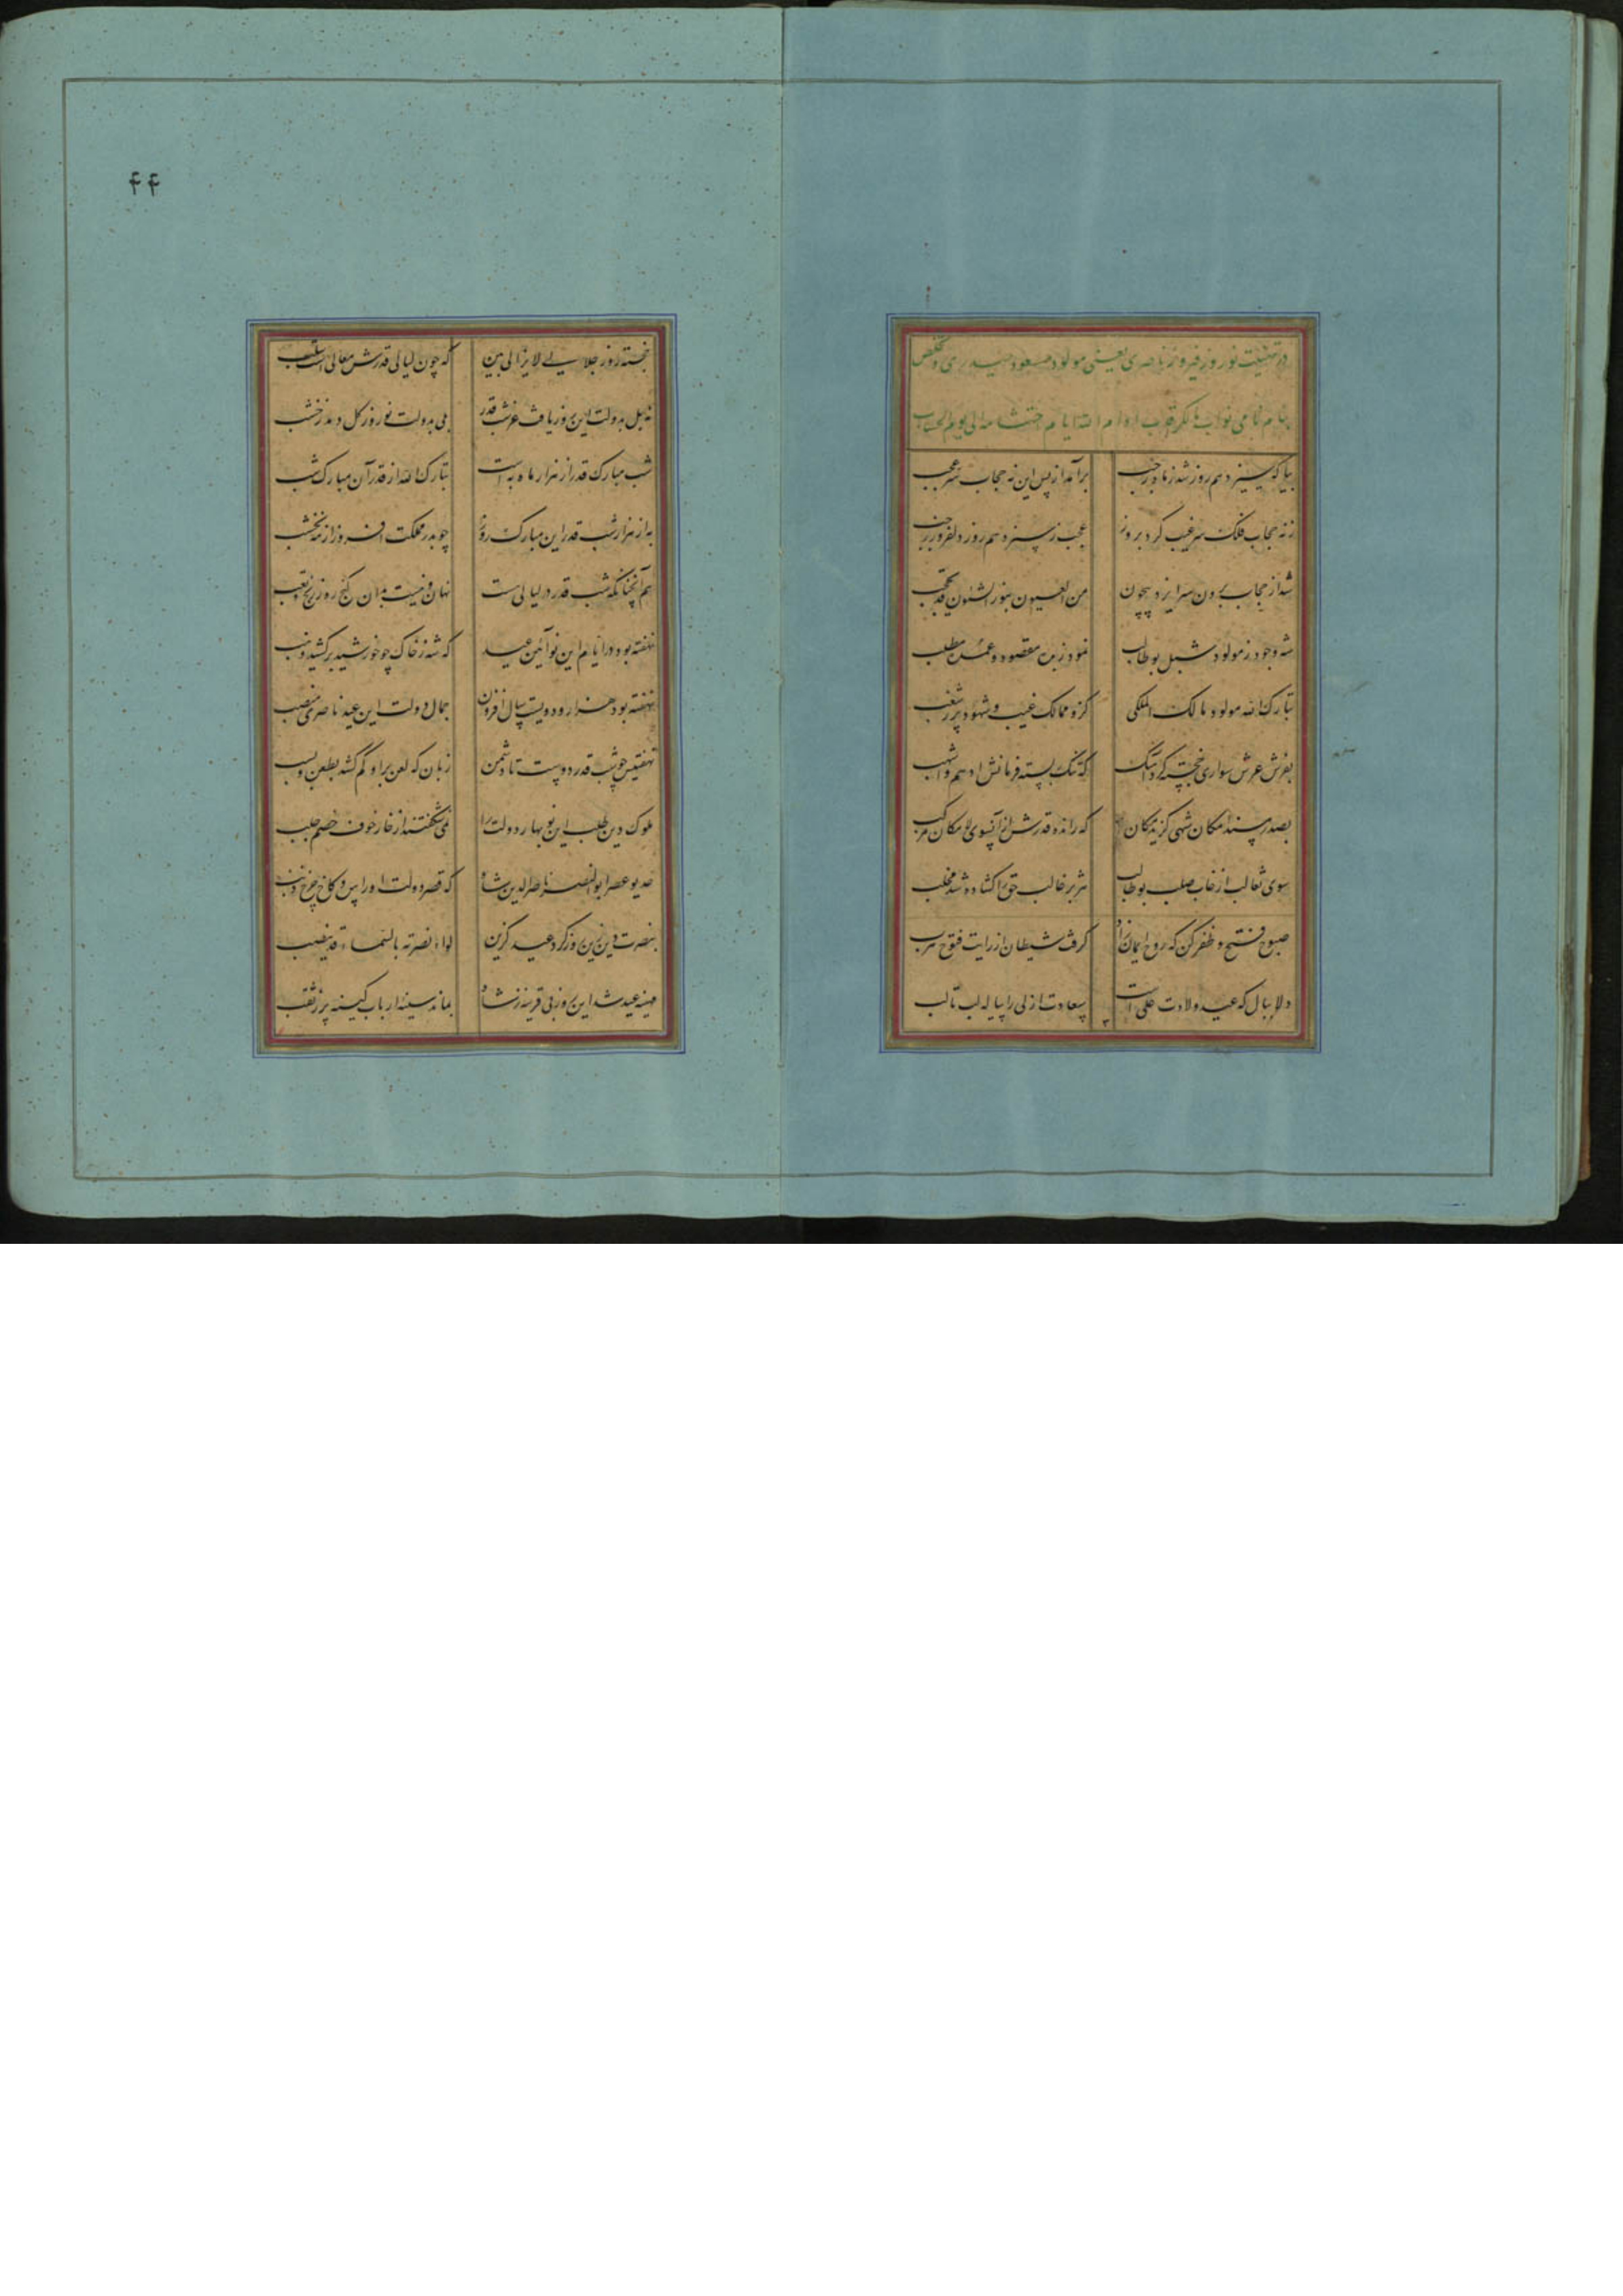 در تهنیت نوروز فیروز ناصری یعنی مولود مسعود حیدری و تخلص
بنام نامی نواب ادام الله ایام الی یوم الحساب
بیا که سیزدهم روز شد ز ماه رجب برآمد از پس این نه حجاب سر عجب
ز نه حجاب فلک سر غیب کرد بروز عجب ز سیزدهم روز دلفروز رجب
شد از حجاب برون سر ایزد بیچون من العیون بنور الشئون
شه وجود ز مولود شبل بوطالب نمود زین مقصود و مطلب
تبارک الله مولود مالک الملکی کزو ممالک غیب و شهود پر ز شغب
بفرش عرش سواری خجسته کرد که تنگ بسته فرمانش ادهم و اشهب
بصدر مسند امکان شهی گزید مکان که رانده قدرش از آنسوی لامکان مرکب
سوی ثعالب از غاب صلب بوطالب هژبر غالب حق را گشاده شد مخلب
صبوح فتح و ظفر کن که روح ایمان را گرفت شیطان از رایت فتوح هرب
دلا ببال که عید ولادت علی است سعادت ازلی را پیاله لب تا لب
۴۴
خجسته روز جلالی لایزالی بین که چون لیالی قدرش معالی است
نه بل بدولت این روز یافت عز شب قدر بلی بدولت نوروز گل دمد ز خشب
شب مبارک قدر از هزار ماه به است تبارک الله از قدر آن مبارک شب
به از هزار شب قدر این مبارک روز چو بدر مملکت افروز از مه نخشب
هم آنچنانکه شب قدر در لیالی است نهان و نیست بدان گنج روز رنج و تعب
نهفته بود در ایام این نو آئین عید که شه ز خاک چو خورشید برکشید
نهفته بود هزار و دویست سال افزون جمال دولت این عید ناصری منصب
نهفتیش چو شب قدر دوست تا دشمن زبان که لعن بر او کم کشد بطعن و بسب
ملوک دین طلب این نوبهار دولت را می شکفتند از خار خوف خصم جلب
خدیو عصر ابوالنصر ناصرالدین شاه که قصر دولت او را پس و کاخ چرخ
بنصرت دین زین روز کرد عید گزین لواء نصرته بالسماء قد ینصب
مهینه عید شد این روز بی قرینه ز شاه بماند سینه ارباب کینه پر ز ثقب